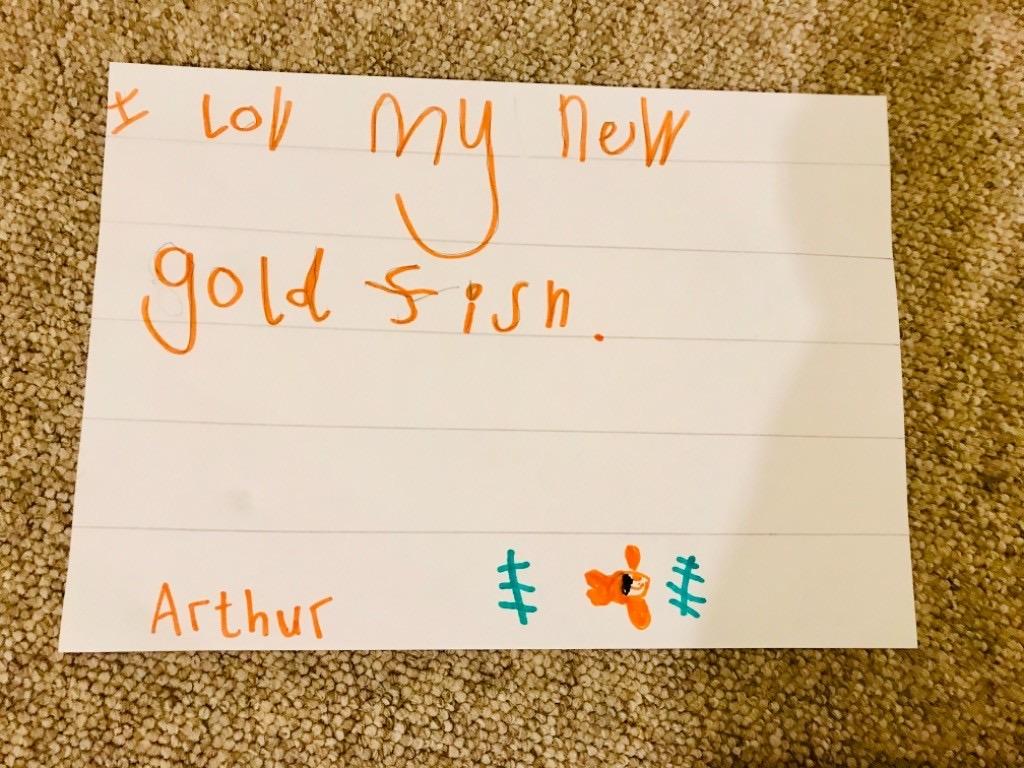 I lov my new
gold fish.
Arthur